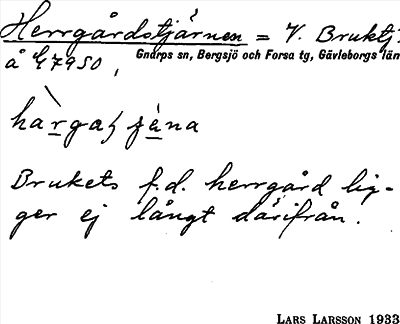 Herrgårdstjärnen = V. Bruktj.
Gnarps sn, Bergsjö och Forsa tg, Gävleborgs län
å 47950,
Brukets f.d. herrgård lig-
ger ej långt därifrån.
LARS LARSSON 1933